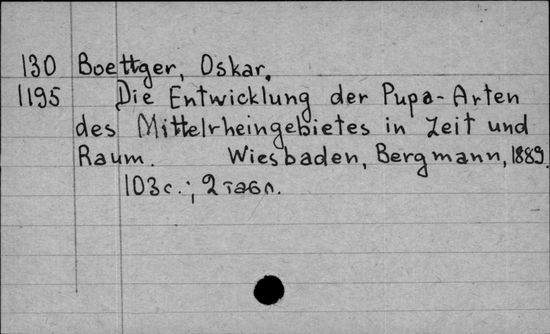 130 Boettger, Oskar.
1195 Die Entwicklung der Pupa-Arten
des Mittelrheingebietes in Zeit und
Raum. Wiesbaden, Bergmann, 1889.
103 с.; 2 табл.